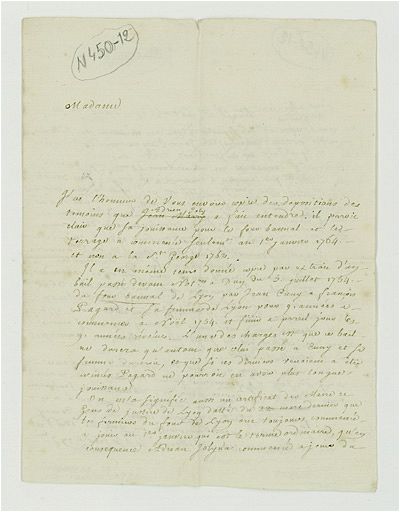 N 450-12
Madame
J'ai l'honneur de Vous envoyer copie des depositions des
temoins que Jean a fait entendre, il paroit
clair que sa jouissance pour le four bannal et led.
terrage a commencé seulement au 1er Janvier 1764.
et non a la St George 1763.
Il a en meme tems donné copie par extrait d'un
bail passé devant du 3. juillet 1754.
du four bannal de Lyon par Jean Cuny a françois
Pagard et sa femme de Lyon pour 9 années a
commencer a Noël 1754. et finir a pareil jour les
9. années revolues. L'une des charges est que ce bail
ne durera qu'autant que celui passé a Cuny et sa
femme durera, et que si ces derniers venoient a etre
evincés Pagard ne pourroit en avoir plus longue
jouissance
On m'a signifié aussi un certificat des Maire et
Gens de justice de Lyon datté du mars dernier que
les fermiers du four de Lyon ont toujours commencé
a jouir au 1er janvier qui est le terme ordinaire, qu'en
consequence Adrian a commencé a jouir du